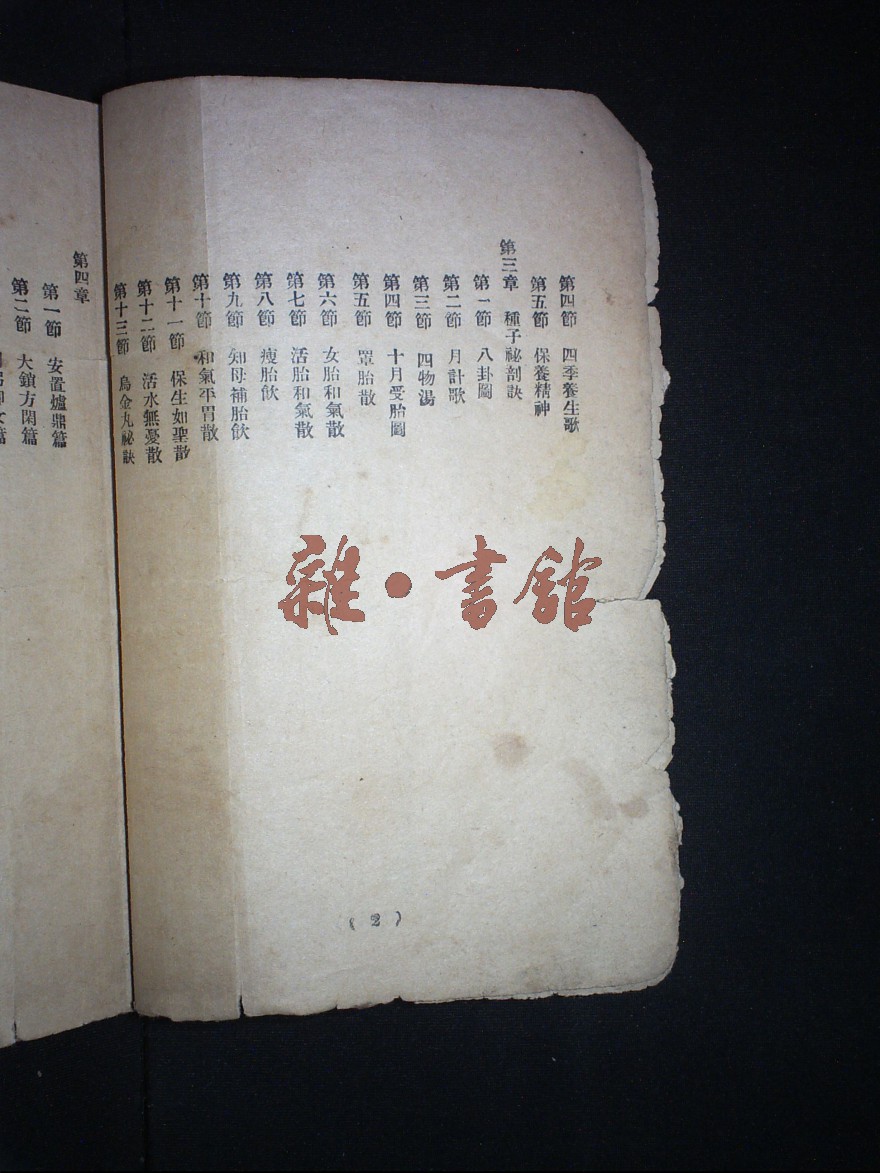 第四節 四季養生歌
第五節 保養精神
第三章 種子祕剖訣
第一節 八卦圖
第二節 月計歌
第三節 四物湯
第四節 十月受胎圖
第五節 罩胎散
第六節 女胎和氣散
第七節 活胎和氣散
第八節 瘦胎飲
第九節 知母補胎飲
第十節 和氣平胃散
第十一節 保生如聖散
第十二節 活水無憂散
第十三節 烏金丸祕訣
(2)
第四章
第一節 安置爐鼎篇
第二節 大鎖方閑篇
女篇
雜•書館